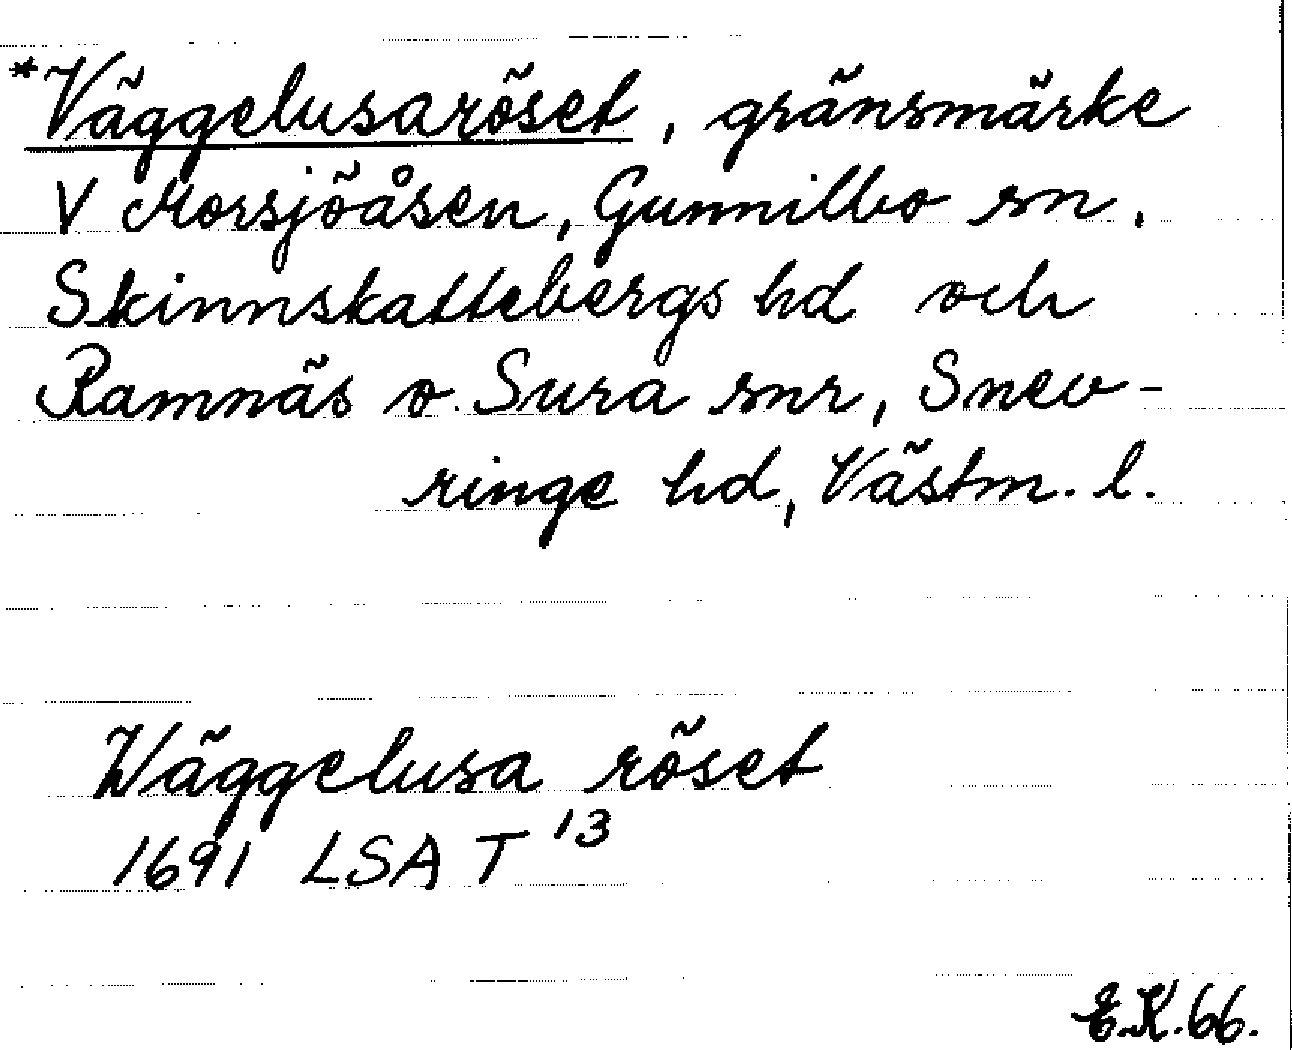 *Väggelusaröset, gränsmärke
V Morsjöåsen, Gunnilbo sn,
Skinnskattebergs hd och
Ramnäs o. Sura snr, Snev-
ringe hd, Västm. l.
Wäggelusa röset
1691 LSA T 13
E.K. 66.